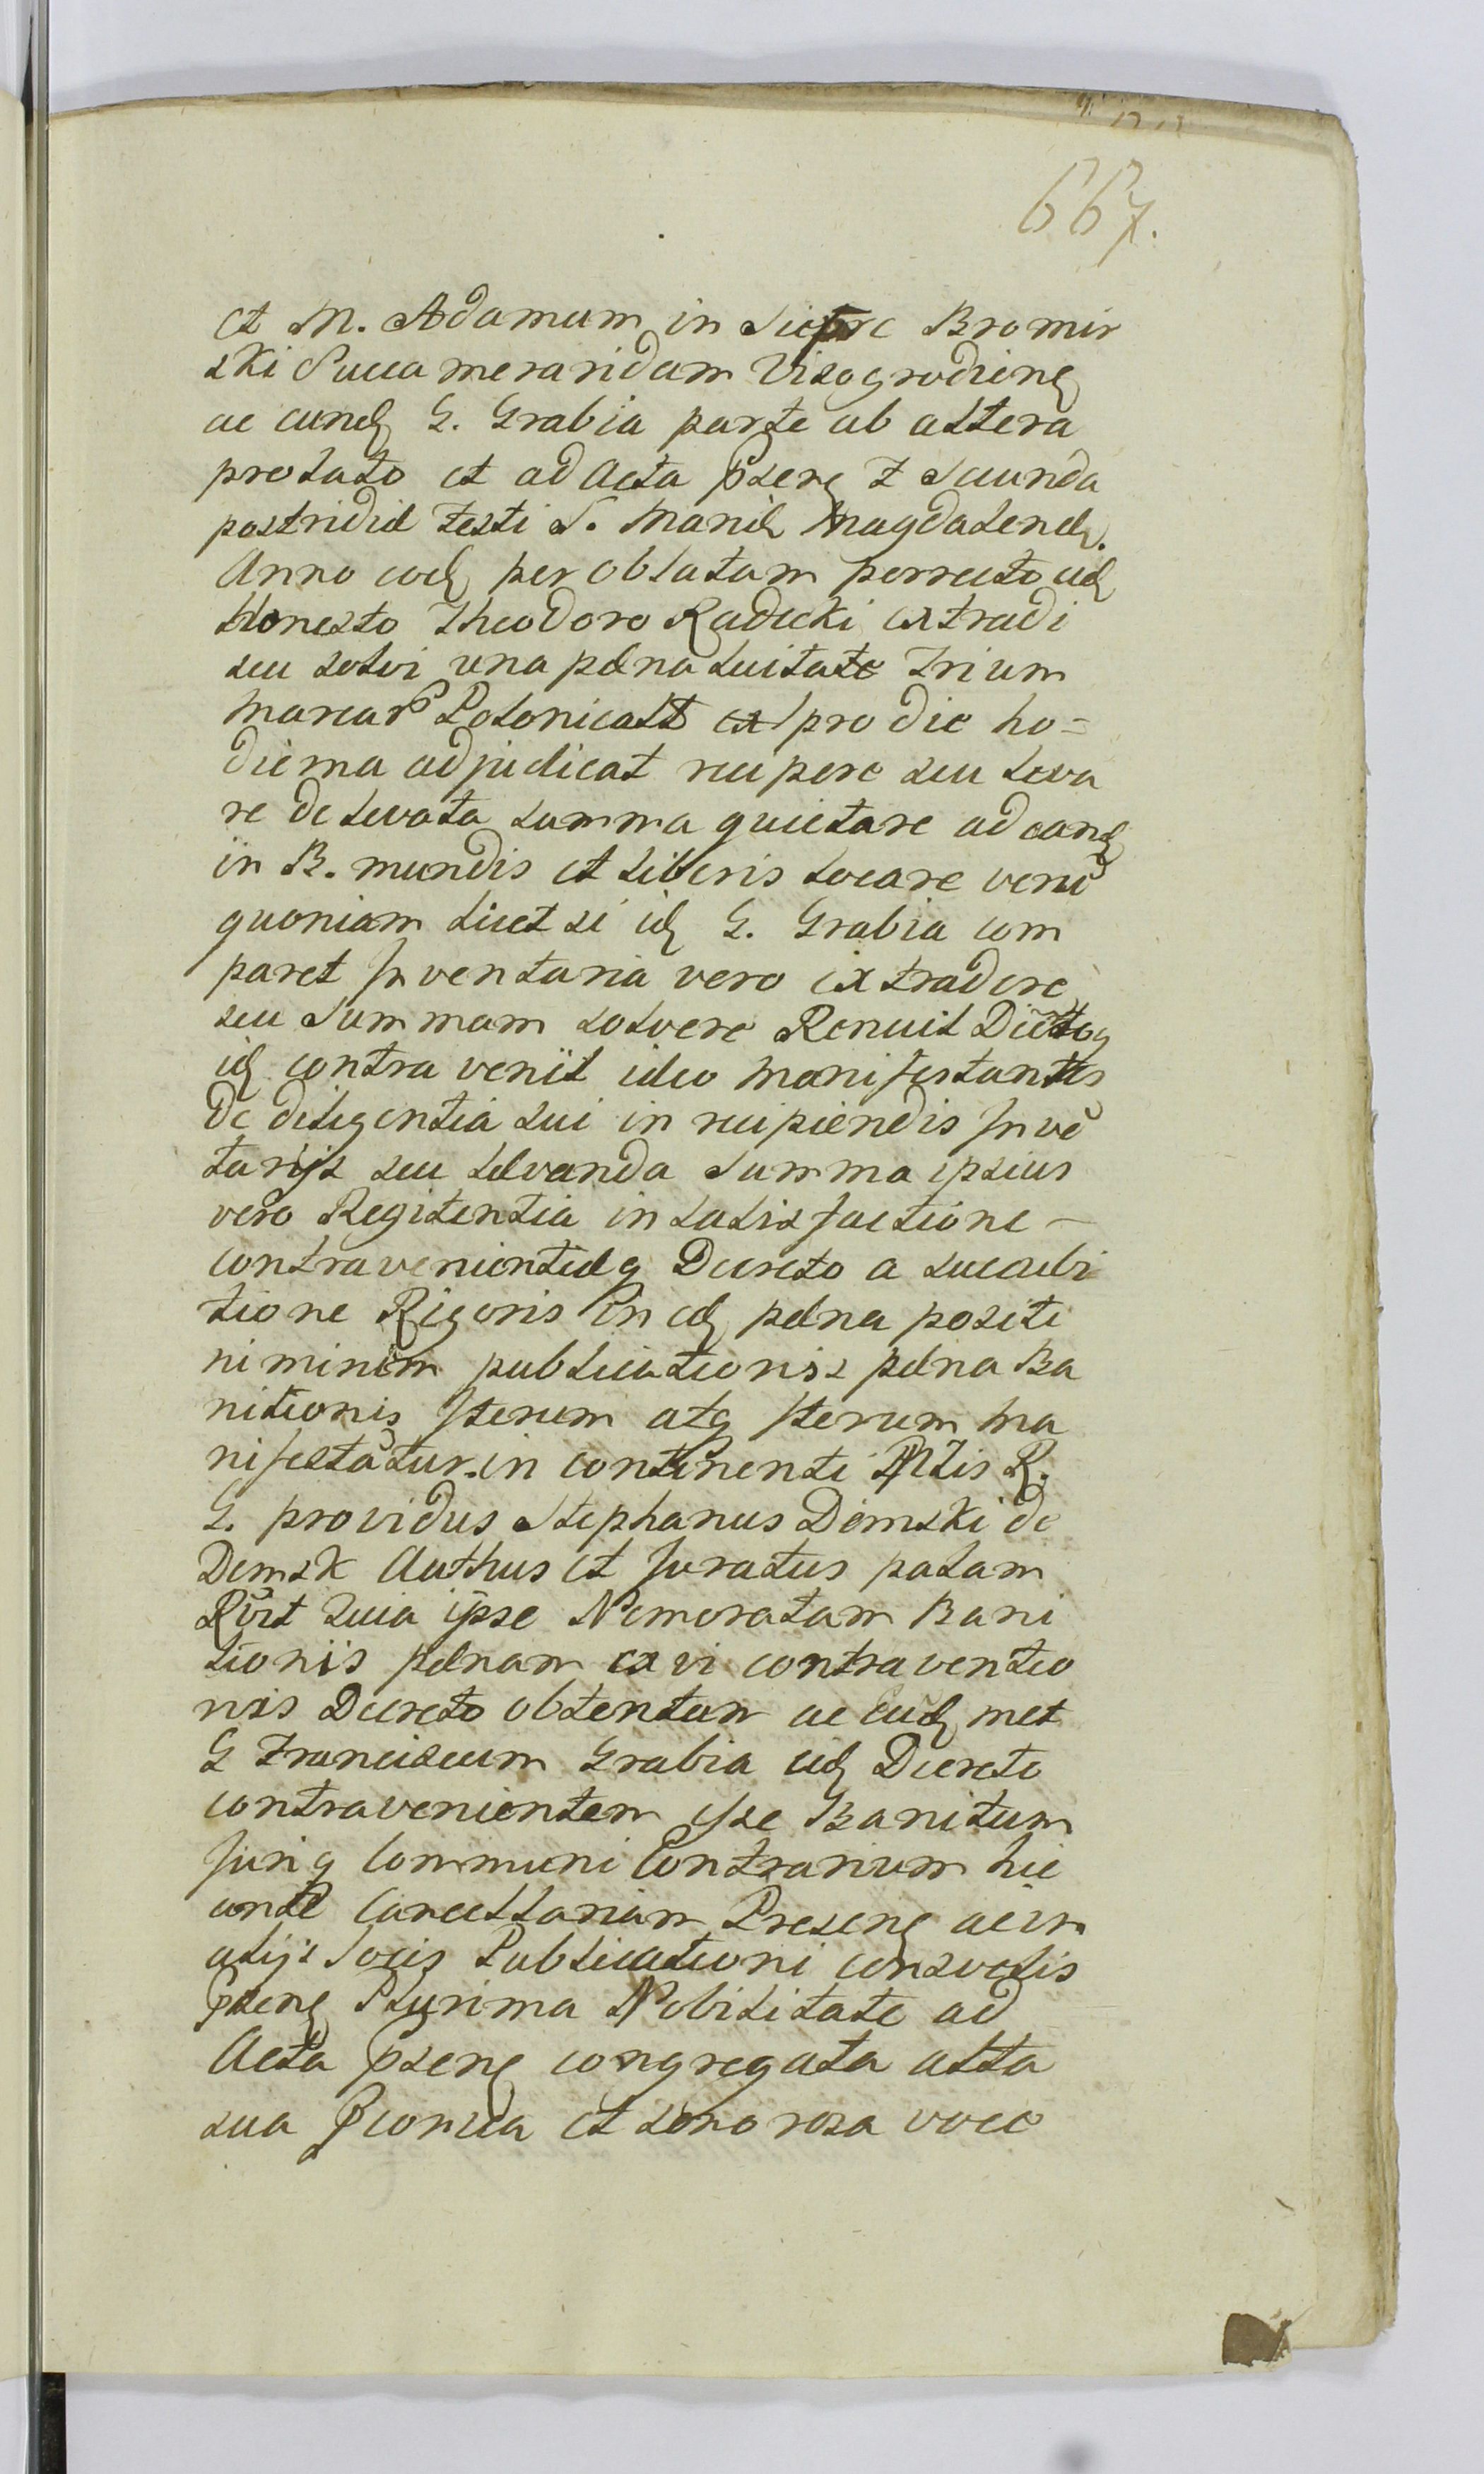 667.
et M. Adamum in Siepre Bromir
ski Succameraridam Visogrodienę
ac eundę G. Grabia parte ab altera
prolato et ad Acta pserę F Secunda
postridie Festi S. Mariæ Magdalenæ.
Anno eodę per Oblatam porrecto eidę
Honesto Theodoro Radecki extradi
seu solvi una pæna luitate trium
Marcar̃ Polonicall ex pro die ho=
dierna adjudicat recipere seu leva
re de levata summa quietare ad eandę
in B. mundis et liberis locare venit
quoniam licet si idę G. Grabia com
paret Inventaria vero extradere
seu Summam solvere Renuit Dictoq
idę contra veniit ideo Manifestantes
de diligentia sui in recipiendis Invẽ
tarijs seu levanda Summa ipsius
vero Regitentia in satisfactione –
contravenientiæq Decreto a succubi
tione Rigoris in edę pæna positi
nimirum publicationis pæna Ba
nitionis Iterum atq Iterum Ma
nifestatur. in continenti Mtis R.
G. providus Stephanus Demski de
Demsk Authus et Juratus palam
Rõit Quia ipse Nemoratam Bani
tionis pænam ex vi contraventio
nis Decreto obtentam ac eũdę met
G Franciscum Grabia eidę Decreto
contravenientem esse Banitum
Juriq Communi Contrarium hic
ante Cancellariam Presenę ac in
alijs Locis Publicationi consvetis
psenę Plurima Nobilitate ad
Acta psenę congregata alta
sua et sonorosa voce